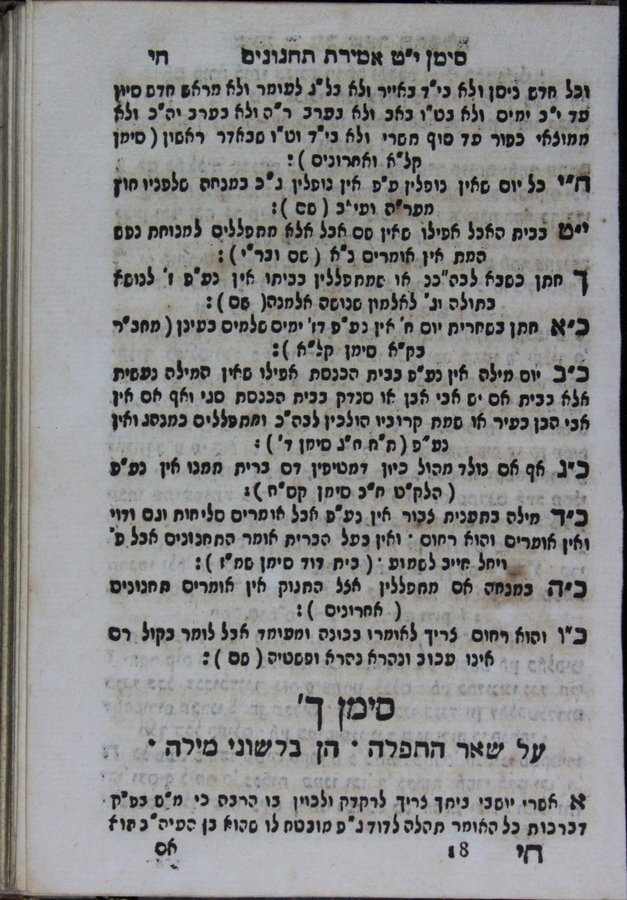 סימן י״ט אמירת תחנונים חי
וכל חדש ניסן ולא בי״ד באייר ולא בל״ג לעומר ולא מראש חדש סיון
עד י״ב ימים ולא בט״ו באב ולא בערב ר״ה ולא בערב יה״כ ולא
ממוצאי כפור עד סוף תשרי ולא בי״ד וט״ו שבאדר ראשון ( סימן
קל״א ואחרונים ) :
ח״י כל יום שאין נופלין ע״פ אין נופלין ג״כ במנחה שלפניו חוץ
מער״ה ועי״כ ( שם ) :
י״ט בבית האבל אפילו שאין שם אבל אלא מתפללים למנוחת נפש
המת אין אומרים נ״א ( שם ובר״י ) :
ך חתן כשבא לבה״כנ או שמתפללין בביתו אין נע״פ ז׳ לנושא
בתולה וג׳ לאלמון שנושה אלמנה( שם ) :
כ״א חתן בשחרית יום ח׳ אין נע״פ דז׳ ימים שלמים בעינן ( מחב״ר
בק״א סימן קל״א ) :
כ״ב יום מילה אין נע״פ בבית הכנסת אפילו שאין המילה נעשית
אלא בבית אם יש אבי הבן או סנדק בבית הכנסת סגי ואף אם אין
אבי הבן בעיר או שמת קרוביו הולכין לבה״כ ומתפללים במנהג ואין
נע״פ ( ח״ח ח״ג סימן ד׳ ) :
כ״ג אף אם נולד מהול כיון דמטיפין דם ברית ממנו אין נע״פ
( הלק״ט ח״ב סימן קס״ח ) :
כ״ד מילה בתענית צבור אין נע״פ אבל אומרים סליחות וגם ודוי
ואין אומרים והוא רחום · ואין בעל הברית אומר התחנונים אבל פ׳
ויחל חייב לשמוע · ( בית דוד סימן שמ״ז ) :
כ״ה במנחה אם מתפללין אצל התנוק אין אומרים תחנונים
( אחרונים ) :
כ״ו והוא רחום צריך לאומרו בכונה ומעומד אבל לומר בקול רם
אינו עכוב ונהרא נהרא ופשטיה ( שם ) :
סימן ך׳
על שאר התפלה · הן בלשוני מילה ·
א אשרי יושבי ביתך צריך לדקדק ולכוין בו הרבה כי מ״ש בפ״ק
דברכות כל האומר תהלה לדוד ג״פ מובטח לו שהוא בן העיה״ב הוא
חי 8 : אם